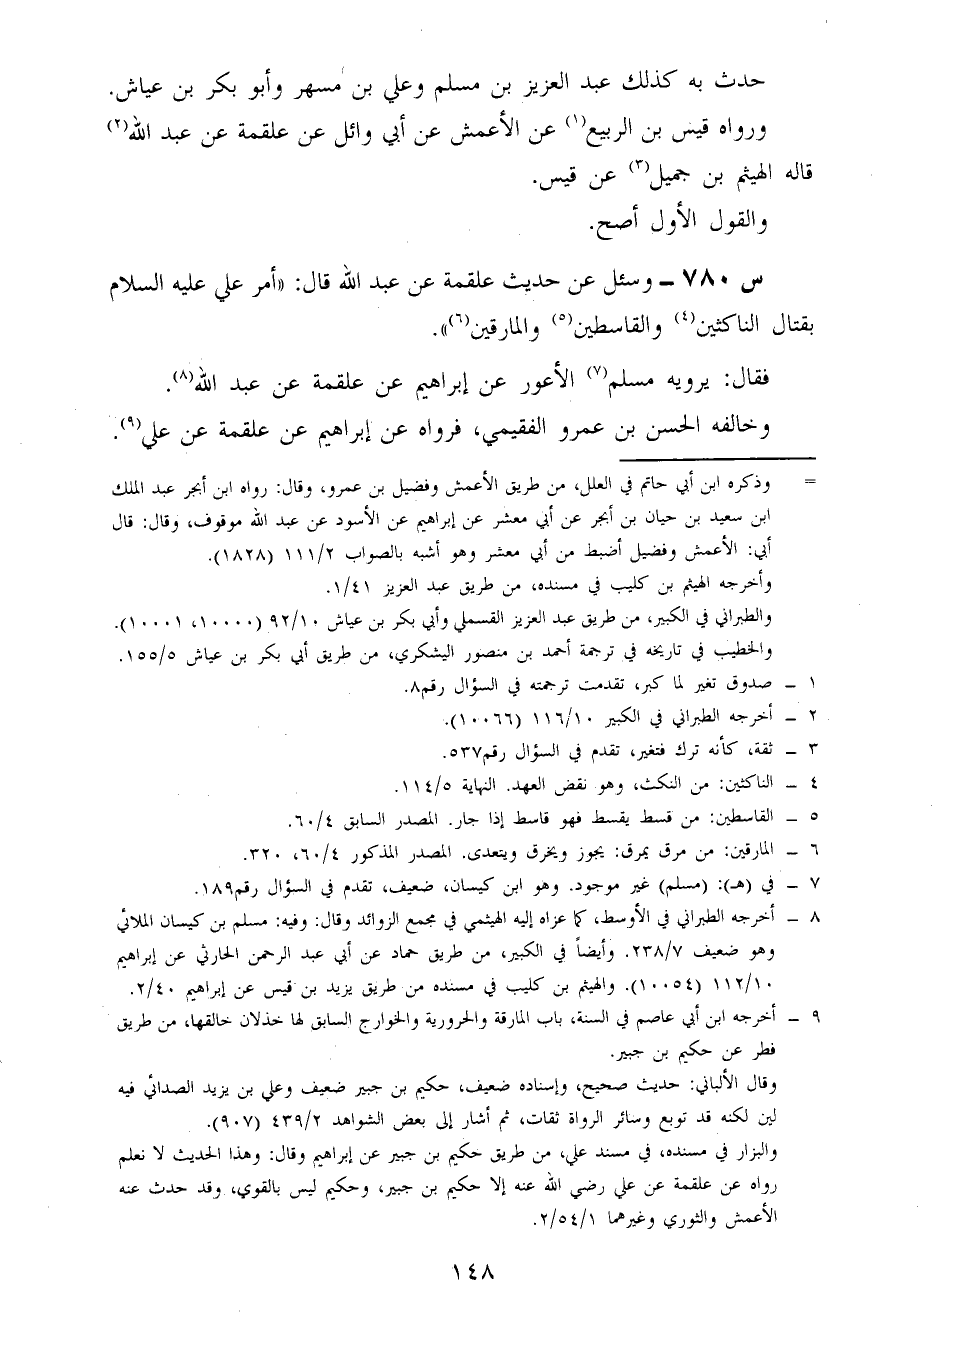 حدث به كذلك عبد العزيز بن مسلم وعلي بن مسهر وأبو بكر بن عياش.
ورواه قيس بن الربيع(١) عن الأعمش عن أبي وائل عن علقمة عن عبد الله(٢)
قاله الهيثم بن جميل(٣) عن قيس.
والقول الأول أصح.
س ٧٨٠ ـ وسئل عن حديث علقمة عن عبد الله قال: «أمر علي عليه السلام
بقتال الناكثين(٤) والقاسطين(٥) والمارقين(٦)».
فقال: يرويه مسلم(٧) الأعور عن إبراهيم عن علقمة عن عبد الله(٨).
وخالفه الحسن بن عمرو الفقيمي، فرواه عن إبراهيم عن علقمة عن علي(٩).
= وذكره ابن أبي حاتم في العلل، من طريق الأعمش وفضيل بن عمرو، وقال: رواه ابن أبجر عبد الملك
ابن سعيد بن حيان بن أبجر عن أبي معشر عن إبراهيم عن الأسود عن عبد الله موقوف، وقال: قال
أبي: الأعمش وفضيل أضبط من أبي معشر وهو أشبه بالصواب ١١١/٢ (١٨٢٨).
وأخرجه الهيثم بن كليب في مسنده، من طريق عبد العزيز ١/٤١.
والطبراني في الكبير، من طريق عبد العزيز القسملي وأبي بكر بن عياش ٩٢/١٠ (١٠٠٠٠، ١٠٠٠١).
والخطيب في تاريخه في ترجمة أحمد بن منصور اليشكري، من طريق أبي بكر بن عياش ١٥٥/٥.
١ ـ صدوق تغير لما كبر، تقدمت ترجمته في السؤال رقم٨.
٢ ـ أخرجه الطبراني في الكبير ١١٦/١٠ (١٠٠٦٦).
٣ ـ ثقة، كأنه ترك فتغير، تقدم في السؤال رقم٥٣٧.
٤ ـ الناكثين: من النكث، وهو نقض العهد. النهاية ١١٤/٥.
٥ ـ القاسطين: من قسط يقسط فهو قاسط إذا جار. المصدر السابق ٦٠/٤.
٦ ـ المارقين: من مرق يمرق: يجوز ويخرق ويتعدى. المصدر المذكور ٦٠/٤، ٣٢٠.
٧ ـ في (هـ): (مسلم) غير موجود. وهو ابن كيسان، ضعيف، تقدم في السؤال رقم١٨٩.
٨ ـ أخرجه الطبراني في الأوسط، كما عزاه إليه الهيثمي في مجمع الزوائد وقال: وفيه: مسلم بن كيسان الملائي
وهو ضعيف ٢٣٨/٧. وأيضاً في الكبير، من طريق حماد عن أبي عبد الرحمن الحارثي عن إبراهيم
١١٢/١٠ (١٠٠٥٤). والهيثم بن كليب في مسنده من طريق يزيد بن قيس عن إبراهيم ٢/٤٠.
٩ ـ أخرجه ابن أبي عاصم في السنة، باب المارقة والحرورية والخوارج السابق لها خذلان خالقها، من طريق
فطر عن حكيم بن جبير.
وقال الألباني: حديث صحيح، وإسناده ضعيف، حكيم بن جبير ضعيف وعلي بن يزيد الصدائي فيه
لين لكنه قد توبع وسائر الرواة ثقات، ثم أشار إلى بعض الشواهد ٤٣٩/٢ (٩٠٧).
والبزار في مسنده، في مسند علي، من طريق حكيم بن جبير عن إبراهيم وقال: وهذا الحديث لا نعلم
رواه عن علقمة عن علي رضي الله عنه إلا حكيم بن جبير، وحكيم ليس بالقوي، وقد حدث عنه
الأعمش والثوري وغيرهما ٢/٥٤/١.
١٤٨